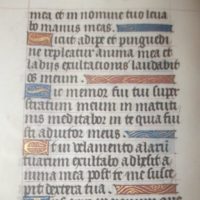 mea et in nomine tuo leua
bo manus meas.
Sicut adipe et pinguedi
ne repleatur anima mea et
labijs exultationis laudabit
os meum.
Sic memor fui tui supr
stratum meum in matuti
nis meditabor in te quia fui
sti adiutor meus.
Et in velamento alaru
tuarum exultabo adhesit a
nima mea post te me susce
pit dextera tua.